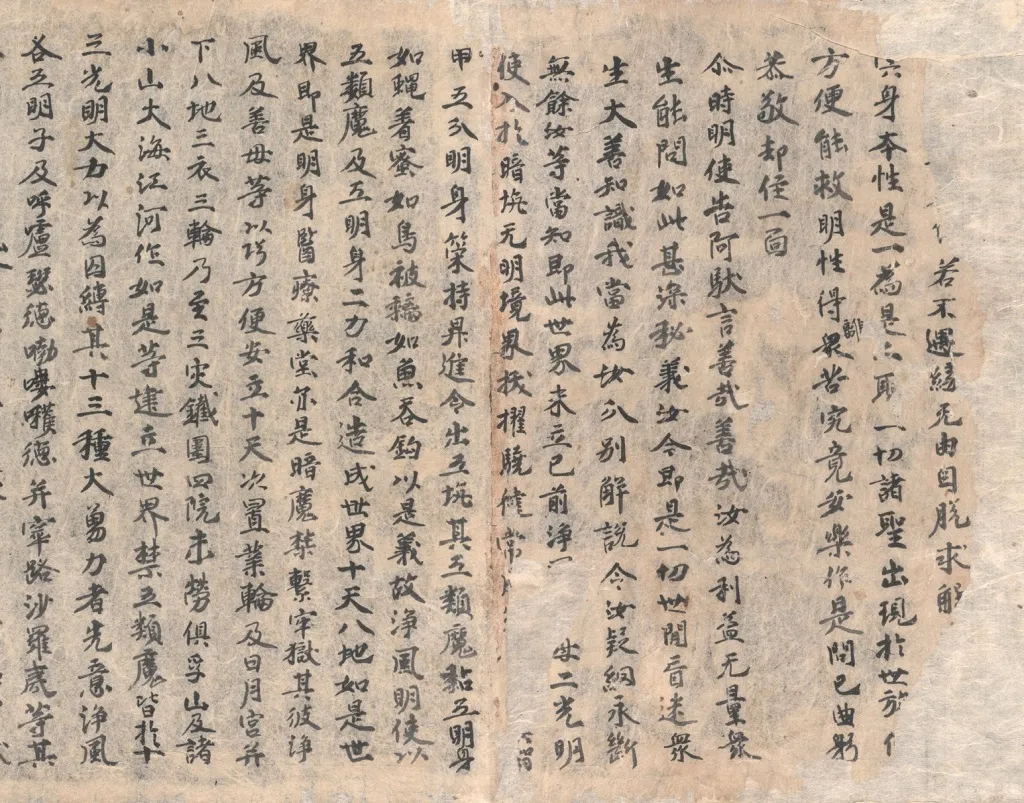 若不遇緣无由自脫求解
宍身夲性是一為是二耶一切諸聖出現於世施
方便能救明性得離眾苦究竟安樂作是問已曲躬
恭敬却住一面
尒時明使告阿馱言善哉善哉汝為利益无量眾
生能問如此甚深秘義汝今即是一切世閒盲迷眾
生大善知識我當為汝分別解說令汝疑網永斷
無餘汝等當知即此世界未立已前淨 母二光明
使入於暗坑无明境界拔擢驍健常
甲五分明身策持昇進令出五坑其五類魔黏五明身
如蝿著蜜如鳥被黐如魚吞鈎以是義故淨風明使以
五類魔及五明身二力和合造成世界十天八地如是世
界即是明身醫療藥堂亦是暗魔禁繫牢獄其彼淨
風及善母等以巧方便安立十天次置業輪及日月宮并
下八地三衣三輪乃至三灾鐵圍四院未勞俱孚山及諸
小山大海江河作如是等建立世界禁五類魔皆於十
三光明大力以為囚縛其十三種大勇力者先意淨風
各五明子及呼嚧瑟德嘞嘍嚄德并窣路沙羅夷等其